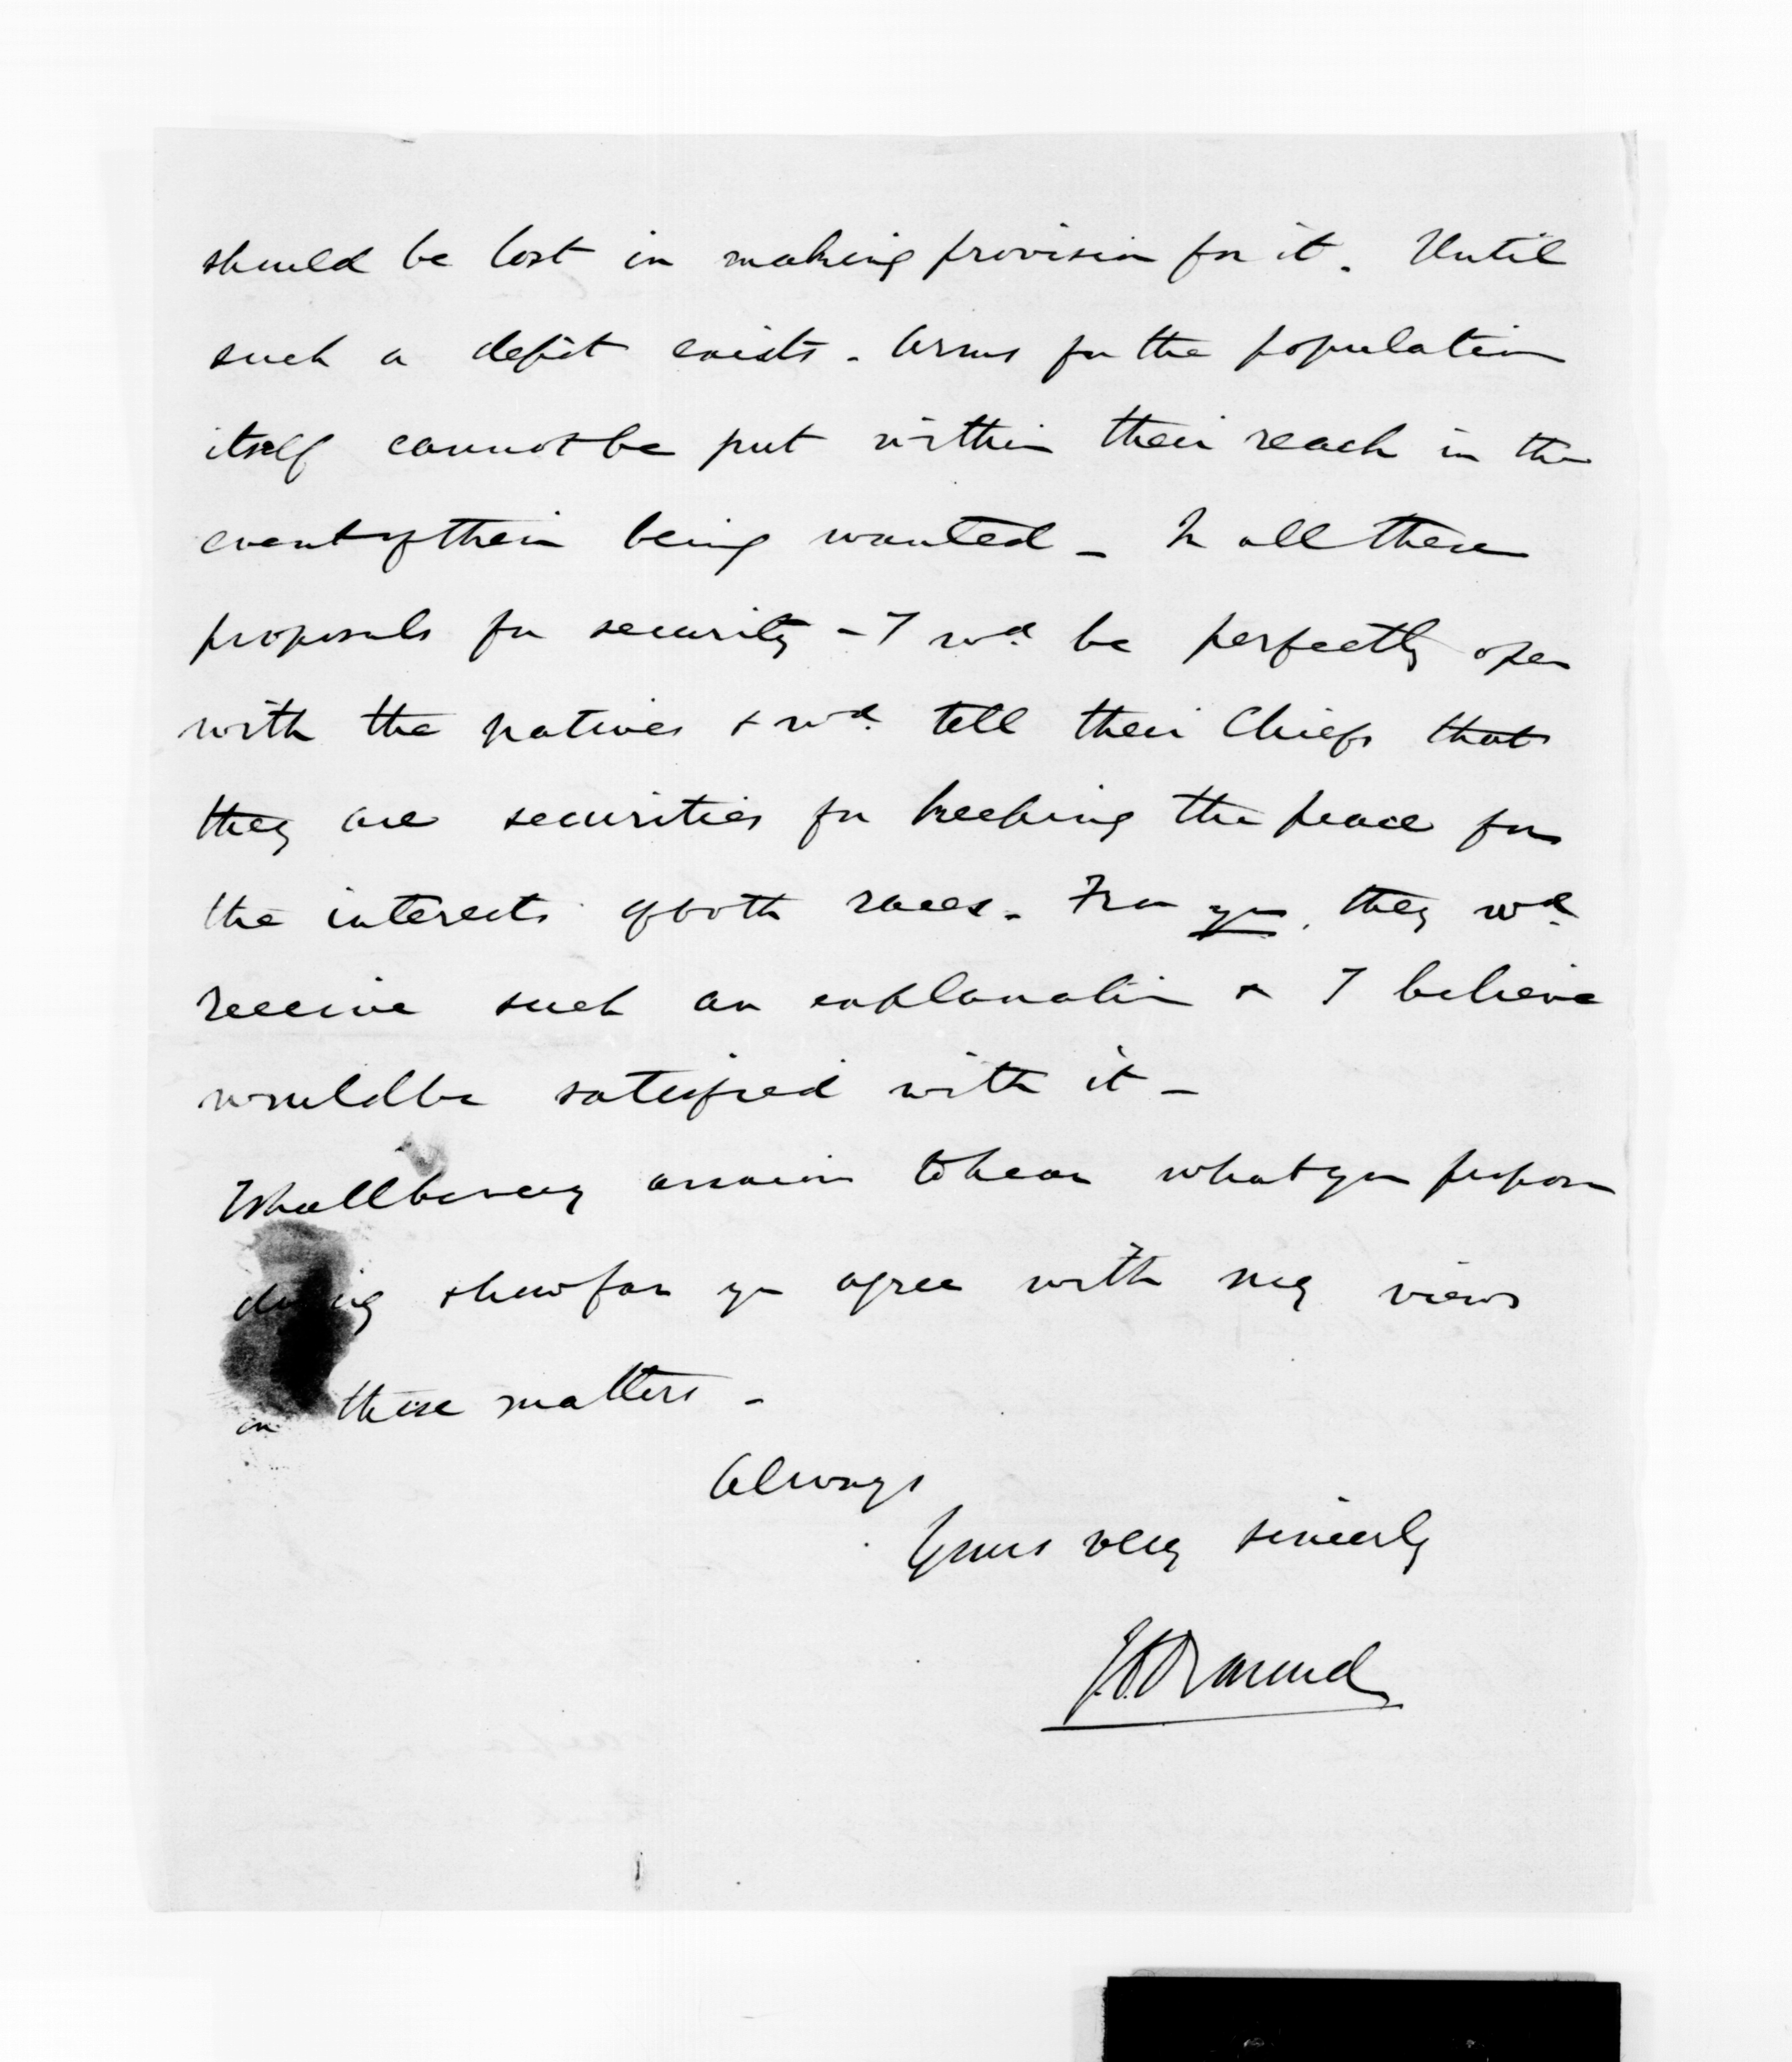 should be lost in making provision for it. Until
such a depôt exists - Arms for the population
itself cannot be put within their reach in the
event of their being wanted - In all these
proposals for security - I wd. be perfectly open
with the natives & wd. tell their Chiefs that
they are securities for keeping the peace for
the interests of both races - From you, they wd.
receive such an explanation & I believe
would be satisfied with it -
I shall be very anxious to hear what you propose
doing & how far you agree with my views
on these matters -
Always
Yours very sincerely